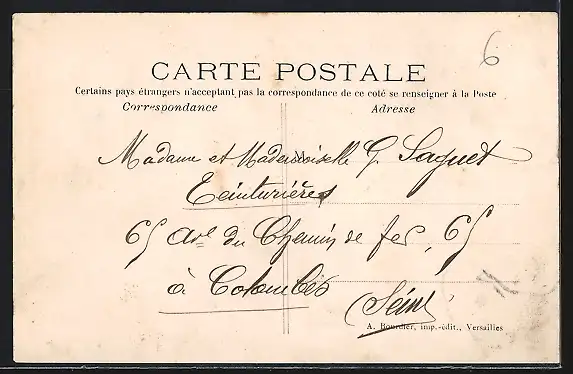 6
CARTE POSTALE
Certains pays étrangers n'acceptant pas la correspondance de ce coté se renseigner à la Poste
Correspondance Adresse
Madame et Mademoiselle G. Saguet
Teinturières
65 Av. du Chemin de fer, 65
à Colombes
(Seine)
A. Bourdier, imp.-édit., Versailles